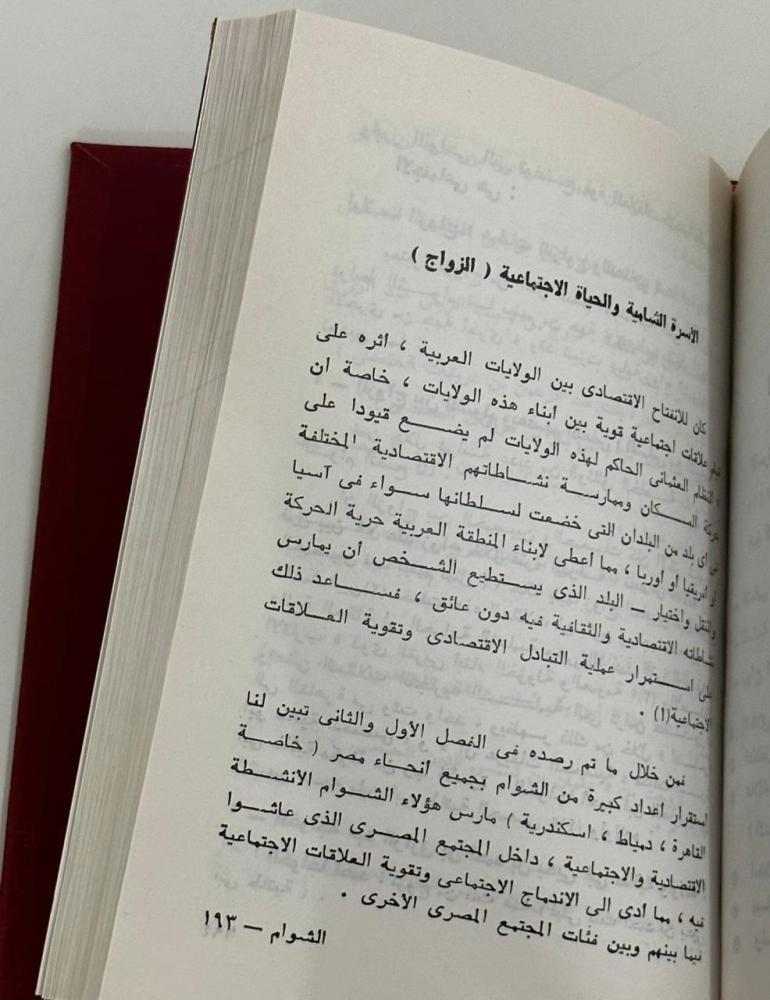 الأسرة الشامية والحياة الاجتماعية ( الزواج )
كان للانفتاح الاقتصادى بين الولايات العربية ، اثره على
قيام علاقات اجتماعية قوية بين ابناء هذه الولايات ، خاصة ان
النظام العثمانى الحاكم لهذه الولايات لم يضع قيودا على
حركة السكان وممارسة نشاطاتهم الاقتصادية المختلفة
فى أى بلد من البلدان التى خضعت لسلطانها سواء فى آسيا
أو أفريقيا أو أوربا ، مما أعطى لابناء المنطقة العربية حرية الحركة
والتنقل واختيار – البلد الذى يستطيع الشخص أن يمارس
نشاطاته الاقتصادية والثقافية فيه دون عائق ، فساعد ذلك
على استمرار عملية التبادل الاقتصادى وتقوية العلاقات
الاجتماعية(١) .
فمن خلال ما تم رصده فى الفصل الأول والثانى تبين لنا
استقرار اعداد كبيرة من الشوام بجميع انحاء مصر ( خاصة
القاهرة ، دمياط ، اسكندرية ) مارس هؤلاء الشوام الأنشطة
الاقتصادية والاجتماعية ، داخل المجتمع المصرى الذى عاشوا
فيه ، مما أدى الى الاندماج الاجتماعى وتقوية العلاقات الاجتماعية
فيما بينهم وبين فئات المجتمع المصرى الأخرى .
الشوام – ١٩٣